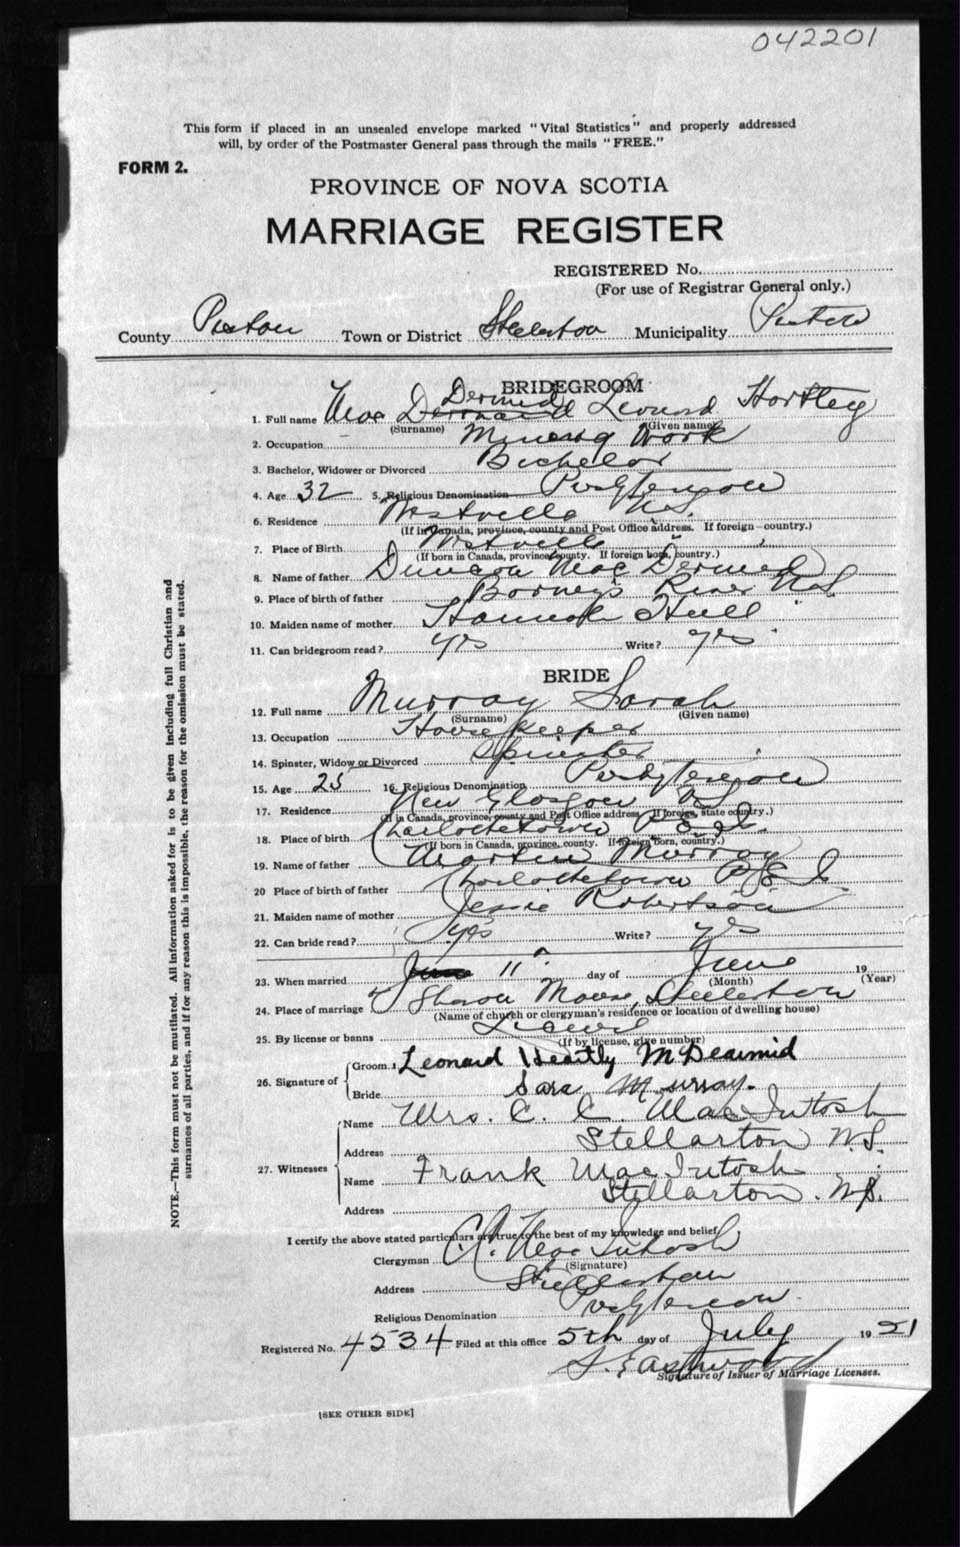 042201
This form if placed in an unsealed envelope marked "Vital Statistics" and properly addressed
will, by order of the Postmaster General pass through the mails "FREE."
FORM 2.
PROVINCE OF NOVA SCOTIA
MARRIAGE REGISTER
REGISTERED No.
(For use of Registrar General only.)
County Pictou Town or District Stellarton Municipality Pictou
BRIDEGROOM
1. Full name Mac Dermid Leonard Hartley
(Surname) (Given name)
2. Occupation Mining Work
3. Bachelor, Widower or Divorced Bachelor
4. Age 32 5. Religious Denomination Presbyterian
6. Residence Westville N.S.
(If in Canada, province, county and Post Office address. If foreign—country.)
7. Place of Birth Westville " "
(If born in Canada, province, county. If foreign born, country.)
8. Name of father Duncan MacDermid
9. Place of birth of father Barney's River N.S.
10. Maiden name of mother Hannah Hull
11. Can bridegroom read? yes Write? yes
BRIDE
12. Full name Murray Sarah
(Surname) (Given name)
13. Occupation Housekeeper
14. Spinster, Widow or Divorced Spinster
15. Age 25 16. Religious Denomination Presbyterian
17. Residence New Glasgow N.S.
(If in Canada, province, county and Post Office address. If foreign, state country.)
18. Place of birth Charlottetown P.E.I.
(If born in Canada, province, county. If foreign born, country.)
19. Name of father Martin Murray
20 Place of birth of father Charlottetown P.E.I.
21. Maiden name of mother Jessie Robertson
22. Can bride read? yes Write? yes
23. When married 11 day of June 19
(Month) (Year)
24. Place of marriage at Sharon Manse, Stellarton
(Name of church or clergyman's residence or location of dwelling house)
25. By license or banns License
(If by license, give number)
26. Signature of
Groom Leonard Heartly McDearmid
Bride Sara Murray.
27. Witnesses
Name Mrs. C. C. MacIntosh
Address Stellarton N.S.
Name Frank MacIntosh
Address Stellarton. N.S.
I certify the above stated particulars are true to the best of my knowledge and belief,
Clergyman C.C. MacIntosh
(Signature)
Address Stellarton
Religious Denomination Presbyterian
Registered No. 4534 Filed at this office 5th day of July 1921
S. Eastwood
Signature of Issuer of Marriage Licenses.
[SEE OTHER SIDE]
NOTE.—This form must not be mutilated. All information asked for is to be given including full Christian and
surnames of all parties, and if for any reason this is impossible, the reason for the omission must be stated.